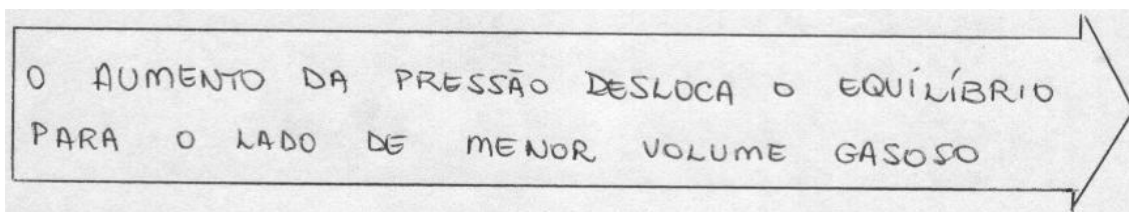 O AUMENTO DA PRESSÃO DESLOCA O EQUÍLÍBRIO
PARA O LADO DE MENOR VOLUME GASOSO